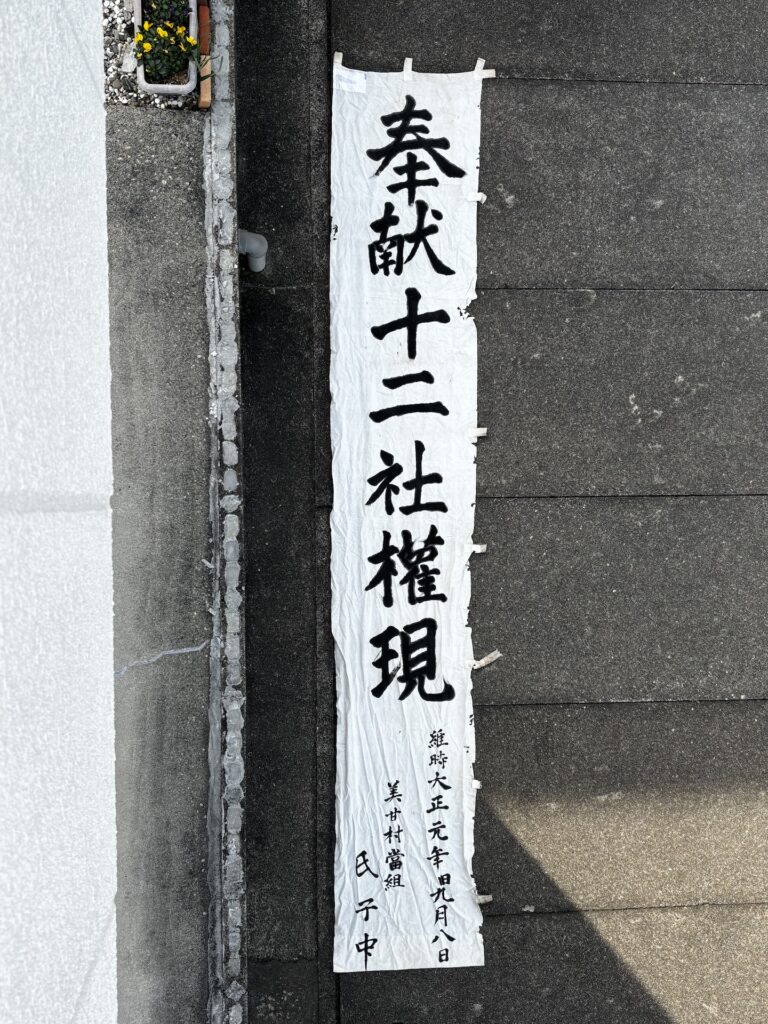 奉献十二社權現
維時大正元年旧九月八日
美甘村當組
氏子中